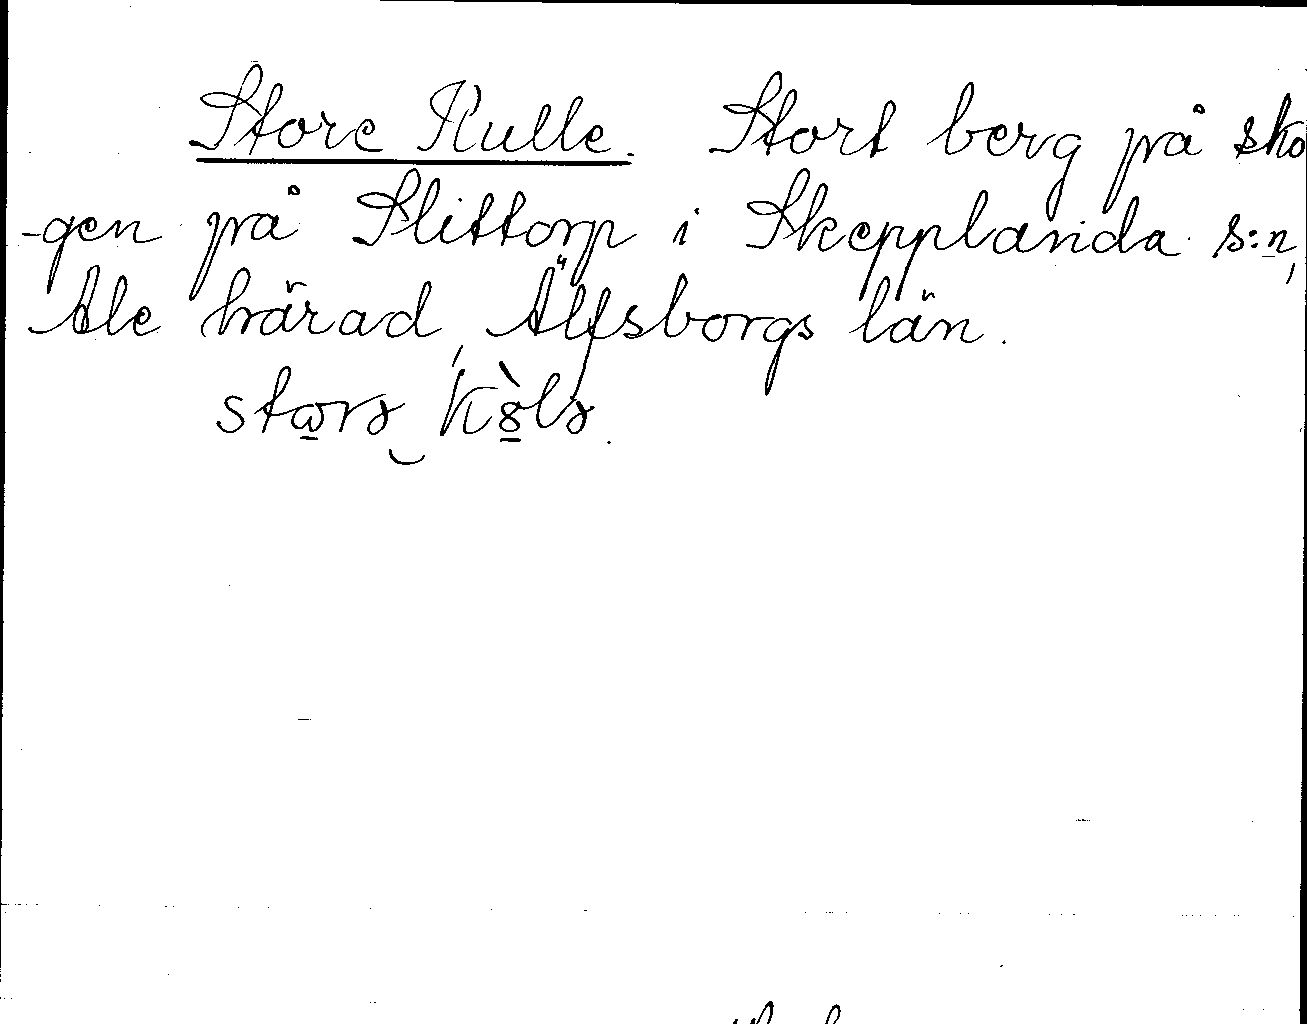 Store Kulle. Stort berg på sko
-gen på Slittorp i Skepplanda s:n,
Ale härad, Älfsborgs län.